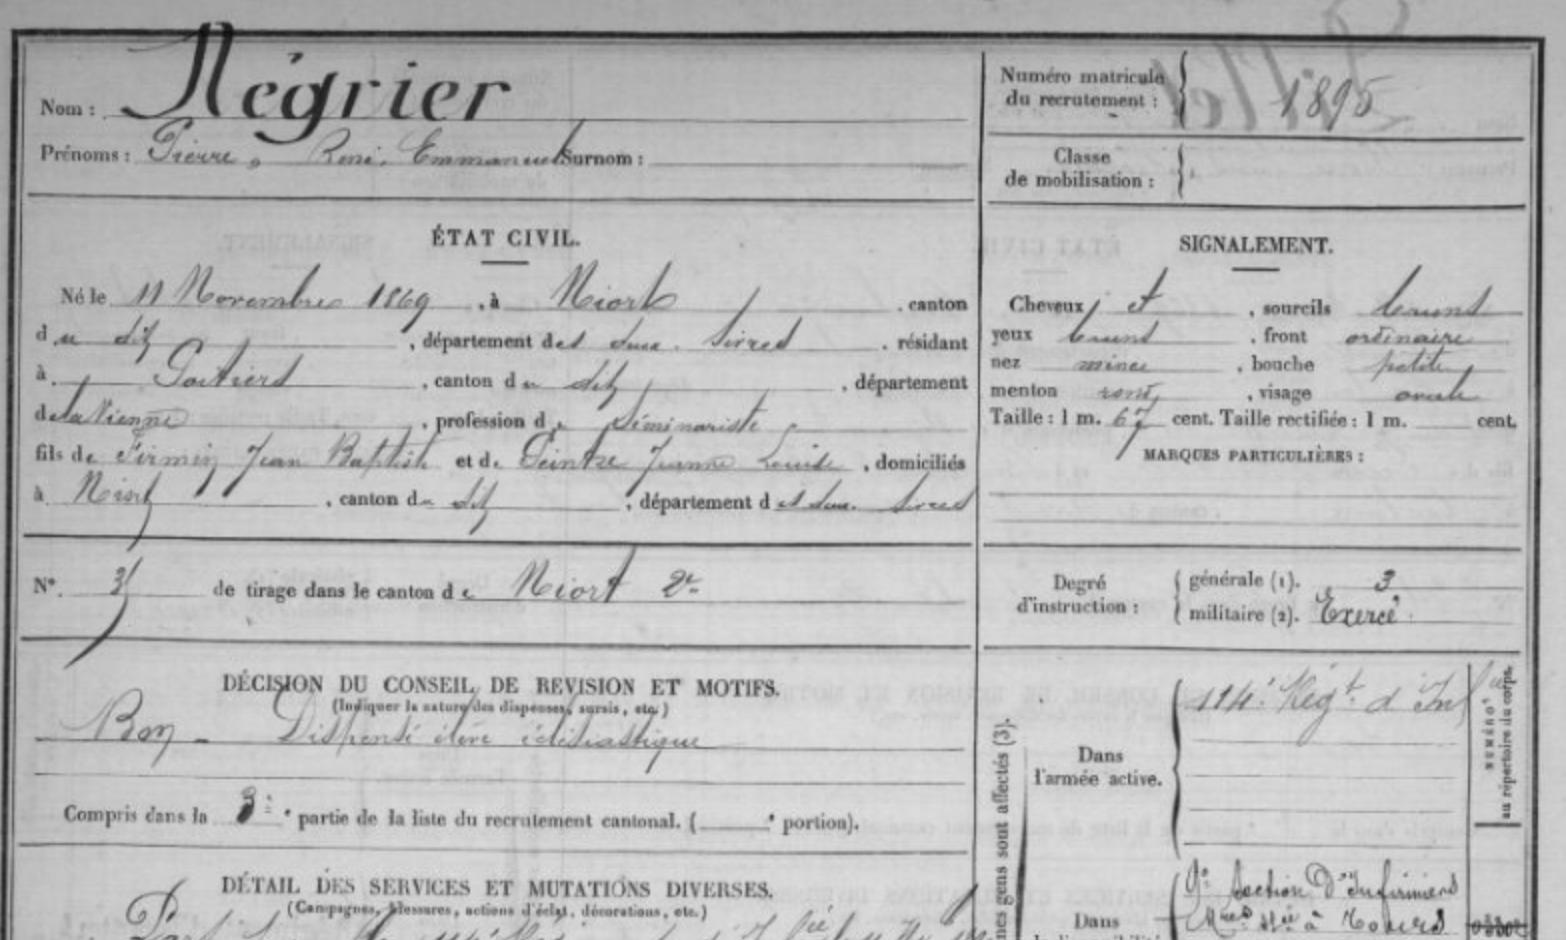 Nom : Négrier
Prénoms : Pierre, René, Emmanuel Surnom :
Numéro matricule du recrutement : 1895
Classe de mobilisation :
ÉTAT CIVIL.
Né le 11 Novembre 1869, à Niort, canton
du dit, département des deux Sèvres, résidant
à Poitiers, canton du dit, département
de la Vienne, profession de Séminariste
fils de Firmin Jean Baptiste et de Peintre Jeanne Louise, domiciliés
à Niort, canton du dit, département des deux Sèvres
SIGNALEMENT.
Cheveux et, sourcils bruns
yeux bruns, front ordinaire
nez mince, bouche petite
menton rond, visage ovale
Taille : 1 m. 67 cent. Taille rectifiée : 1 m. cent.
MARQUES PARTICULIÈRES :
N° 3 de tirage dans le canton de Niort 2e
Degré d'instruction : générale (1). 3
militaire (2). Exercé
DÉCISION DU CONSEIL DE REVISION ET MOTIFS.
(Indiquer la nature des dispenses, sursis, etc.)
Bon - Dispensé élève écclésiastique
Compris dans la 3e partie de la liste du recrutement cantonal. ( e portion).
DÉTAIL DES SERVICES ET MUTATIONS DIVERSES.
(Campagnes, blessures, actions d'éclat, décorations, etc.)
nes gens sont affectés (3).
Dans l'armée active.
114e Régt d'Infie
NUMÉROS au répertoire du corps.
Dans
9e Section d'Infirmiers
Mres à Tours